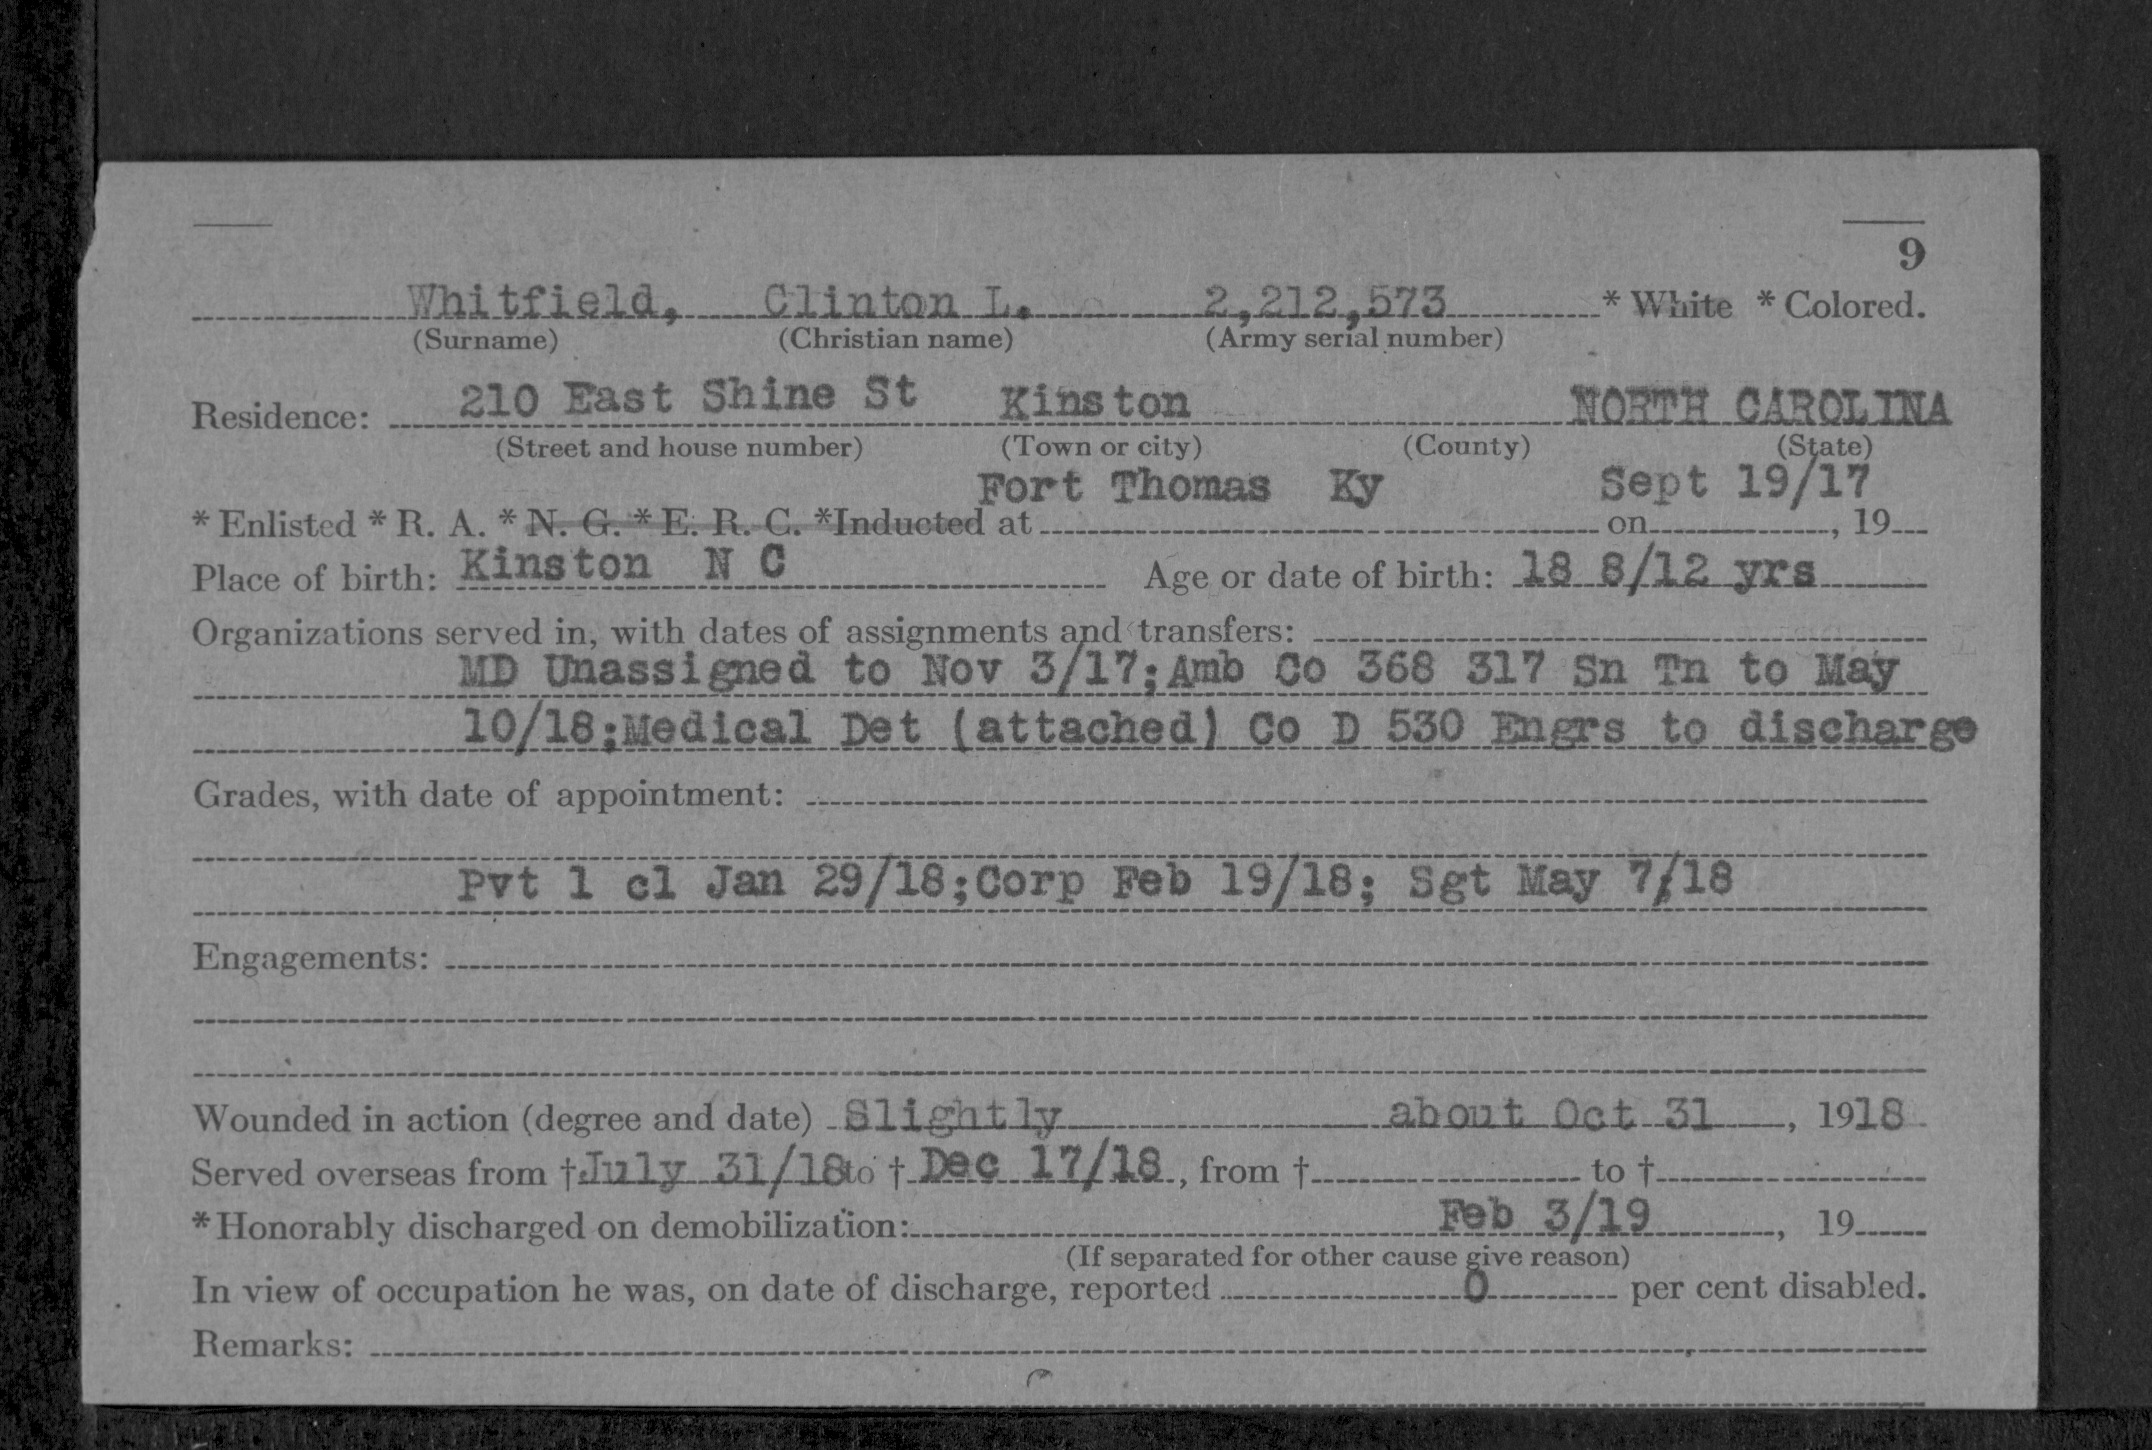 9
Whitfield, Clinton L. 2,212,573 * White * Colored.
(Surname) (Christian name) (Army serial number)
Residence: 210 East Shine St Kinston NORTH CAROLINA
(Street and house number) (Town or city) (County) (State)
Fort Thomas Ky Sept 19/17
* Enlisted * R. A. * N. G. * E. R. C. *Inducted at on , 19
Place of birth: Kinston N C Age or date of birth: 18 8/12 yrs
Organizations served in, with dates of assignments and transfers:
MD Unassigned to Nov 3/17;Amb Co 368 317 Sn Tn to May
10/18;Medical Det (attached) Co D 530 Engrs to discharge
Grades, with date of appointment:
Pvt 1 cl Jan 29/18;Corp Feb 19/18; Sgt May 7/18
Engagements:
Wounded in action (degree and date) Slightly about Oct 31 , 1918
Served overseas from † July 31/18 to † Dec 17/18 , from † to †
* Honorably discharged on demobilization: Feb 3/19 , 19
(If separated for other cause give reason)
In view of occupation he was, on date of discharge, reported 0 per cent disabled.
Remarks: